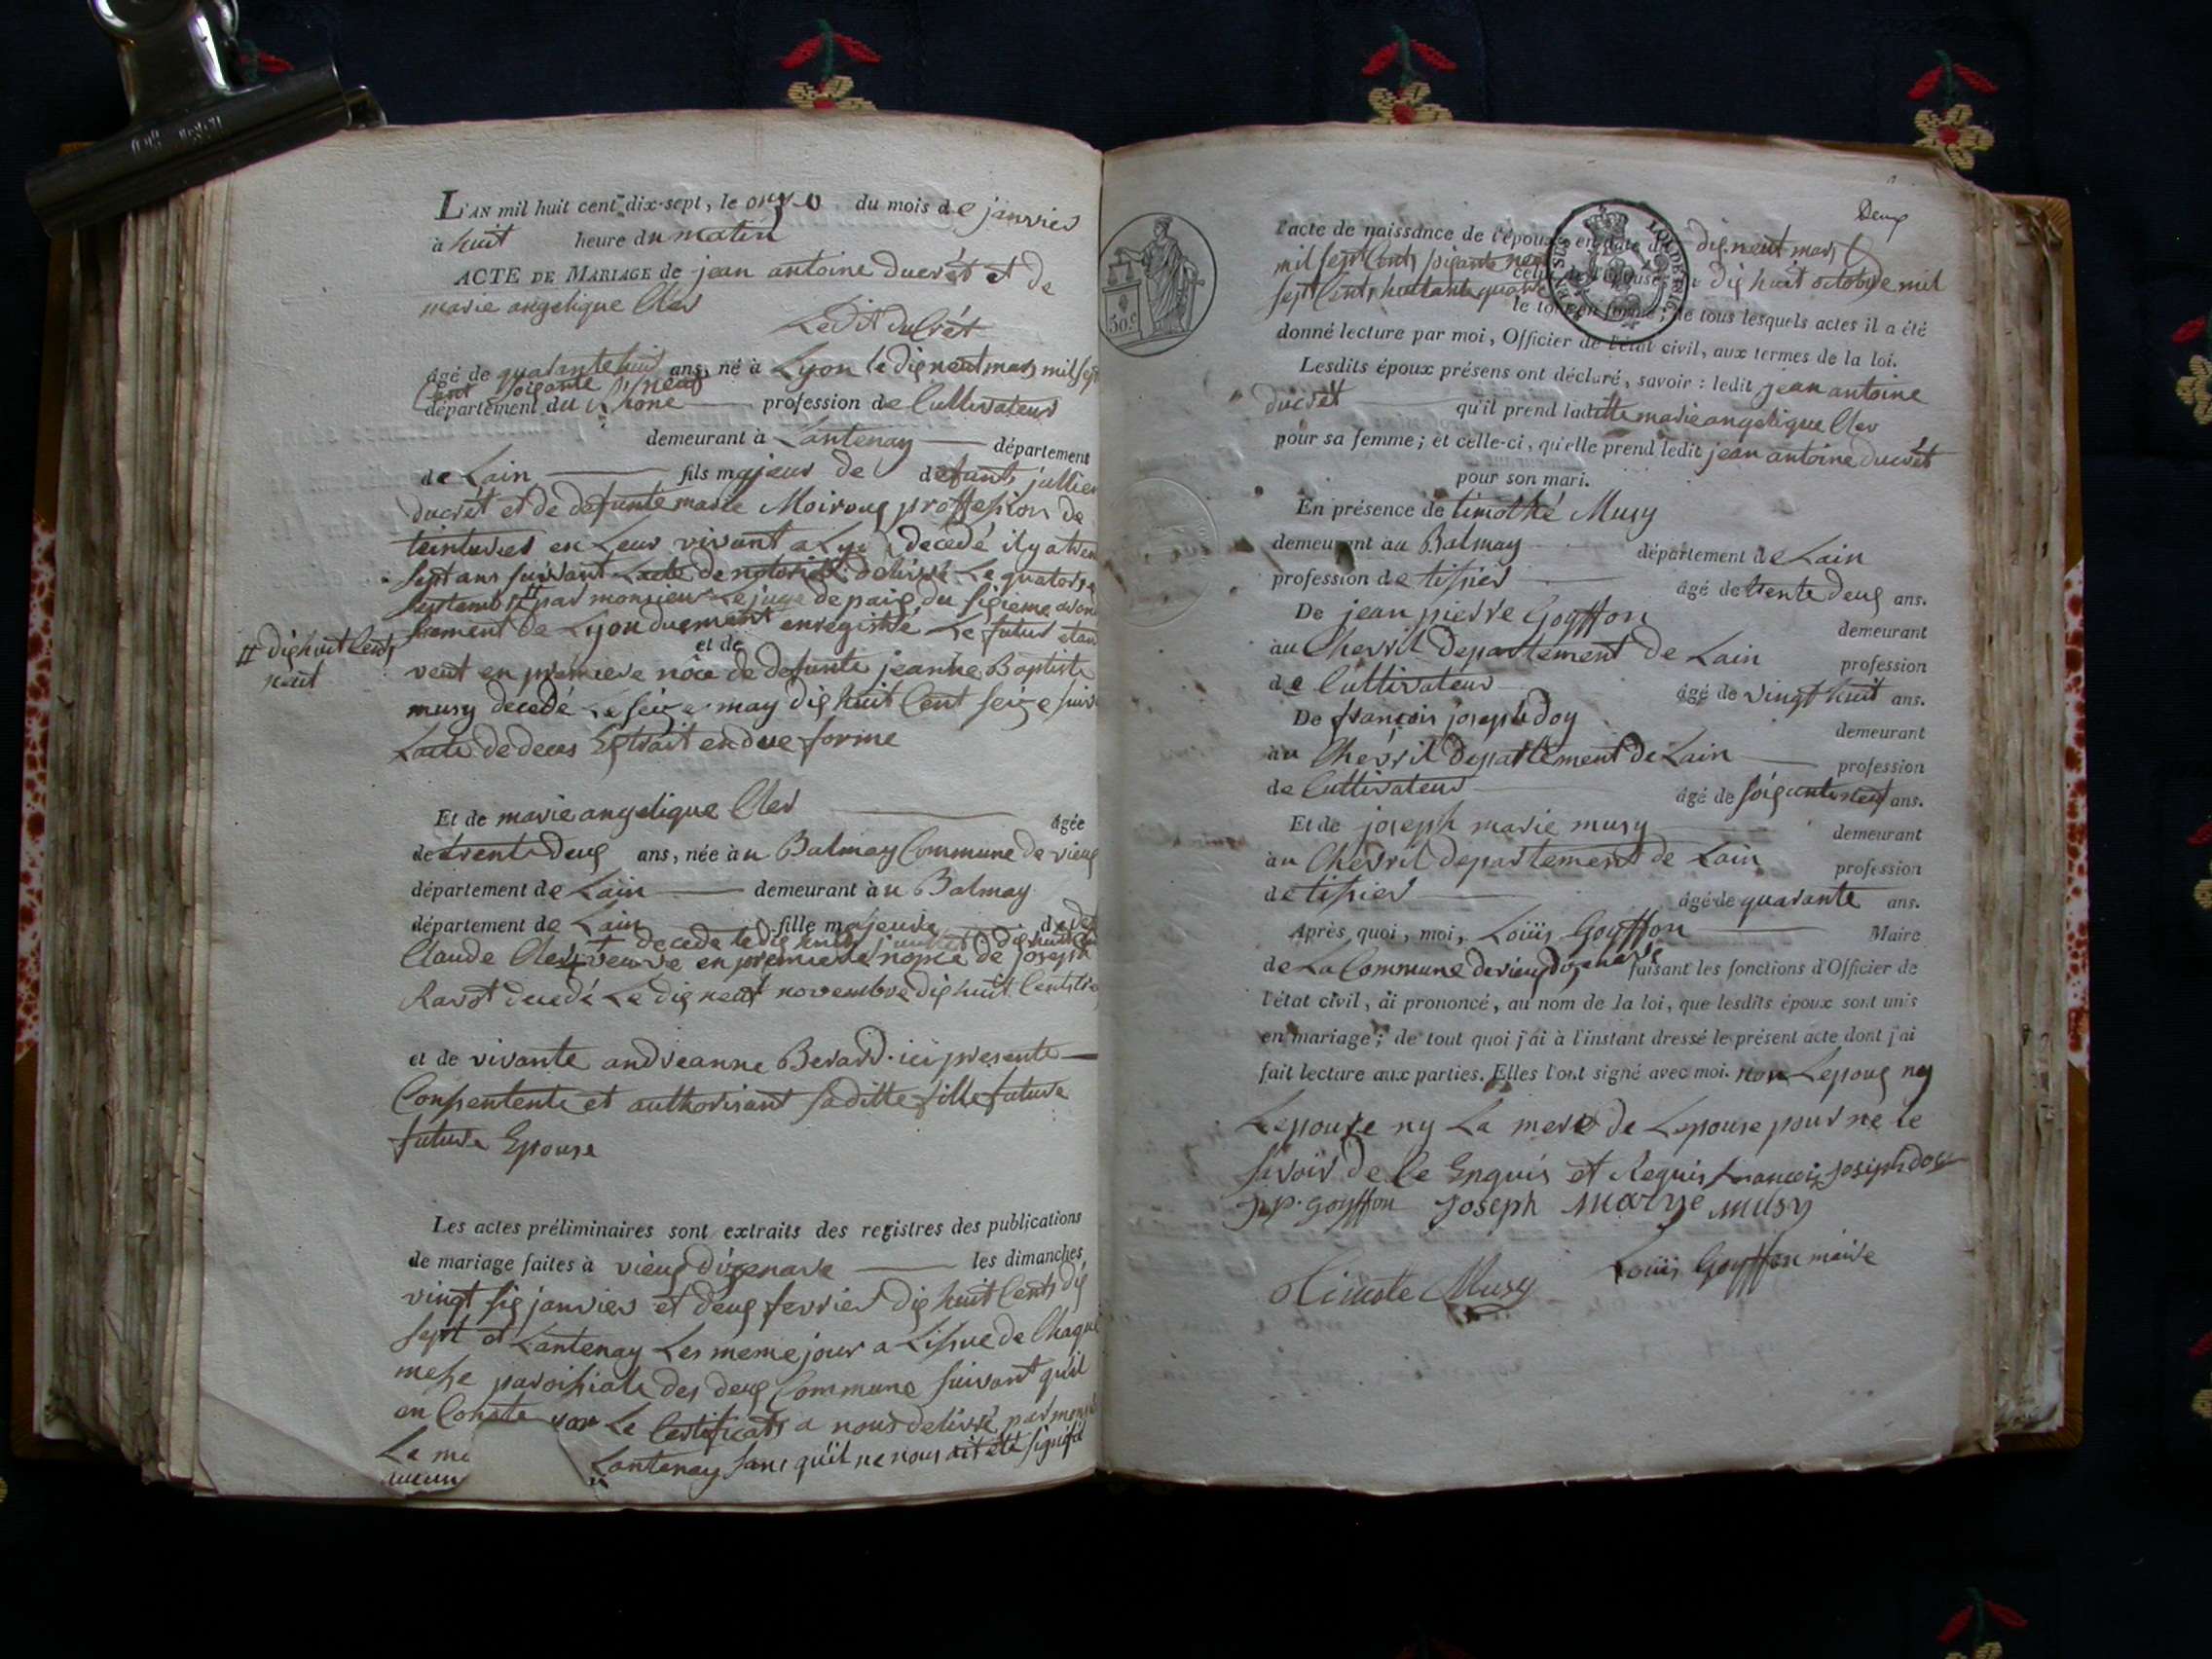 L'AN mil huit cent dix-sept, le onze du mois de janvier
à huit heure du matin
ACTE DE MARIAGE de jean antoine ducrêt et de
marie angelique Cler
Ledit duCrêt
âgé de quatante huit ans, né à Lyon le dix neuf mars mil sept
Cent soixante neuf
département du Rhône profession de Cultivateur
demeurant à Lantenay département
de Lain fils majeur de defunts jullien
ducrêt et de defunte marie Moiroux proffession de
teinturier en Leur vivant a Lyon decedé il y a trente
sept ans suivant Lacte de notoriété delivré Le quatorze
septembre # par monsieur Le juge de paix du sixieme arron
# dix huit Cents
neuf
sement de Lyon duement enregistré Le futur etant
et de
veuf en premiere nôce de defunte jeanne Baptiste
musy decedé Le seize may dix huit Cent seize suiv
Lacte de deces Extrait en due forme
Et de marie angelique Cler âgée
de trente deux ans, née au Balmay Commune de vieux
département de Lain demeurant au Balmay
département de Lain fille majeure de
decedé le dix huit
Claude Cler veuve en premiere nopce de joseph
Ravot decedé Le dix neuf novembre dix huit Cents
et de vivante andreanne Berard ici presente
Consentente et authorisant saditte fille future
future Epouse
Les actes préliminaires sont extraits des registres des publications
de mariage faites à vieux dizenave les dimanches
vingt six janvier et deux fevrier dix huit Cents dix
sept et Lantenay Les meme jour a Lissue de Chaque
messe paroissiale des deux Commune suivant qu'il
en Conste par Le Certificats a nous delivré par mons
Le ma Lantenay sans qu'il ne nous ait été signifié
aucun
Deux
l'acte de naissance de l'époux en date du dix neuf mars
mil sept Cents soixante neuf
celui de l'épouse dix huit octobre mil
sept Cents huitante quatre
le tout en forme; de tous lesquels actes il a été
donné lecture par moi, Officier de l'état civil, aux termes de la loi.
Lesdits époux présens ont déclaré, savoir: ledit jean antoine
ducrêt qu'il prend laditte marie angelique Cler
pour sa femme; et celle-ci, qu'elle prend ledit jean antoine ducrêt
pour son mari.
En présence de timothé Musy
demeurant au Balmay département de Lain
profession de tissier âgé de trente deux ans.
De jean pierre Goyffon demeurant
au Chevril departement de Lain profession
de Cultivateur âgé de vingt huit ans.
De françois joseph doy demeurant
au Chevril departement de Lain profession
de Cultivateur âgé de soixante neuf ans.
Et de joseph marie musy demeurant
au Chevril departement de Lain profession
de tissier âgé de quarante ans.
Après quoi, moi, Loüis Goyffon Maire
de La Commune de vieux dizenave faisant les fonctions d'Officier de
l'état civil, ai prononcé, au nom de la loi, que lesdits époux sont unis
en mariage; de tout quoi j'ai à l'instant dressé le présent acte dont j'ai
fait lecture aux parties. Elles l'ont signé avec moi. non Lepoux ny
Lepouse ny La mere de Lepouse pour ne le
savoir de Ce Enquis et Requis françois joseph doy
j.p. goyffon joseph marye musy
Timote Musy Loüis Goyffon maire